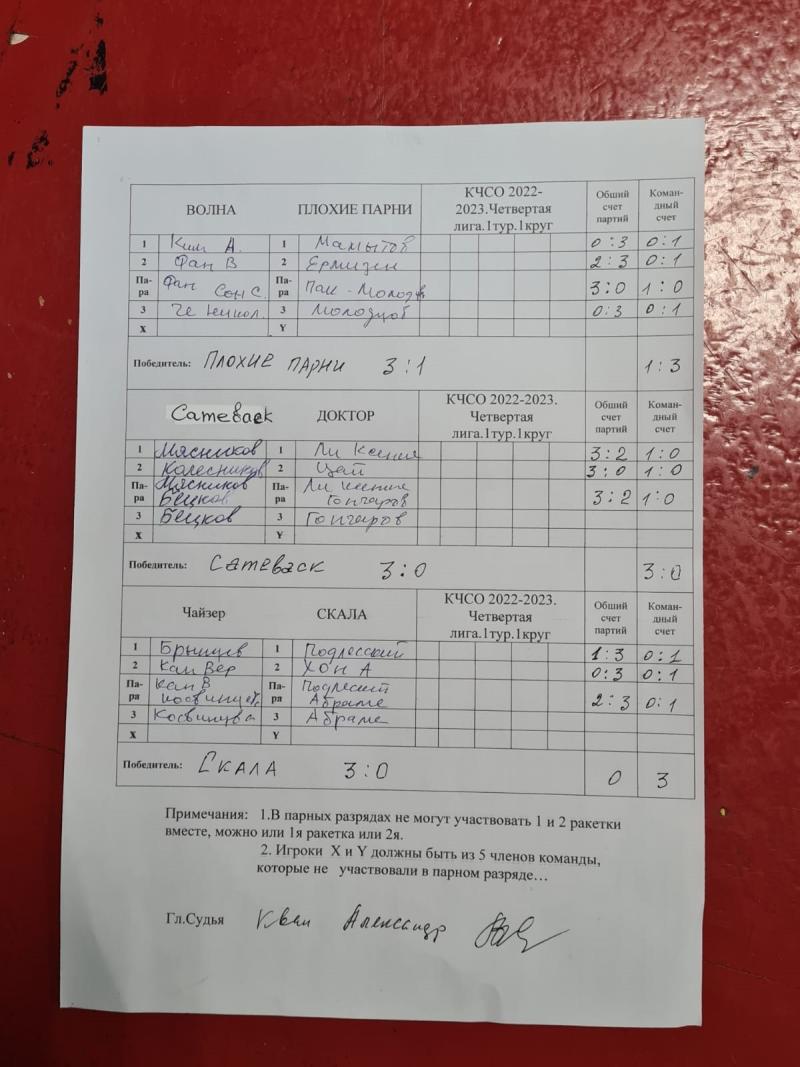 ВОЛНА ПЛОХИЕ ПАРНИ КЧСО 2022-2023.Четвертая лига.1тур.1круг Общий счет партий Коман-дный счет
1 Ким А. 1 Мамытов 0:3 0:1
2 Фан В 2 Ермизин 2:3 0:1
Па-ра Фан Сон С. Па-ра Пак - Молодцов 3:0 1:0
3 Че Никол. 3 Молодцов 0:3 0:1
X Y
Победитель: ПЛОХИЕ ПАРНИ 3:1 1:3
Cameback ДОКТОР КЧСО 2022-2023. Четвертая лига.1тур.1круг Общий счет партий Коман-дный счет
1 Мясников 1 Ли Ксения 3:2 1:0
2 Колесников 2 Цай 3:0 1:0
Па-ра Мясников Бецков Па-ра Ли Ксения Гончаров 3:2 1:0
3 Бецков 3 Гончаров
X Y
Победитель: Cameback 3:0 3:0
Чайзер СКАЛА КЧСО 2022-2023. Четвертая лига.1тур.1круг Общий счет партий Коман-дный счет
1 1 Подлесский 1:3 0:1
2 Кан Вер 2 ХОН А 0:3 0:1
Па-ра Кан В Па-ра Абраме 2:3 0:1
3 3 Абраме
X Y
Победитель: СКАЛА 3:0 0 3
Примечания: 1.В парных разрядах не могут участвовать 1 и 2 ракетки
вместе, можно или 1я ракетка или 2я.
2. Игроки X и Y должны быть из 5 членов команды,
которые не участвовали в парном разряде…
Гл.Судья Кван Александр